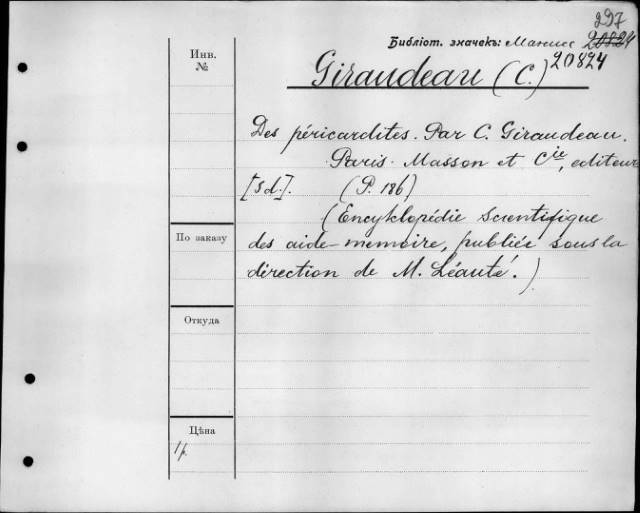 297
Библіот. значекъ: 20824
20824
Инв.
№
Giraudeau (C.)
Des péricardites. Par C. Giraudeau.
Paris. Masson et Cie, editeurs
[s d.]. (P. 186)
(Encyklopédie Scientifique
По заказу
des aide-memoire, publiée sous la
direction de M. Léauté.)
Откуда
Цѣна
1 р.